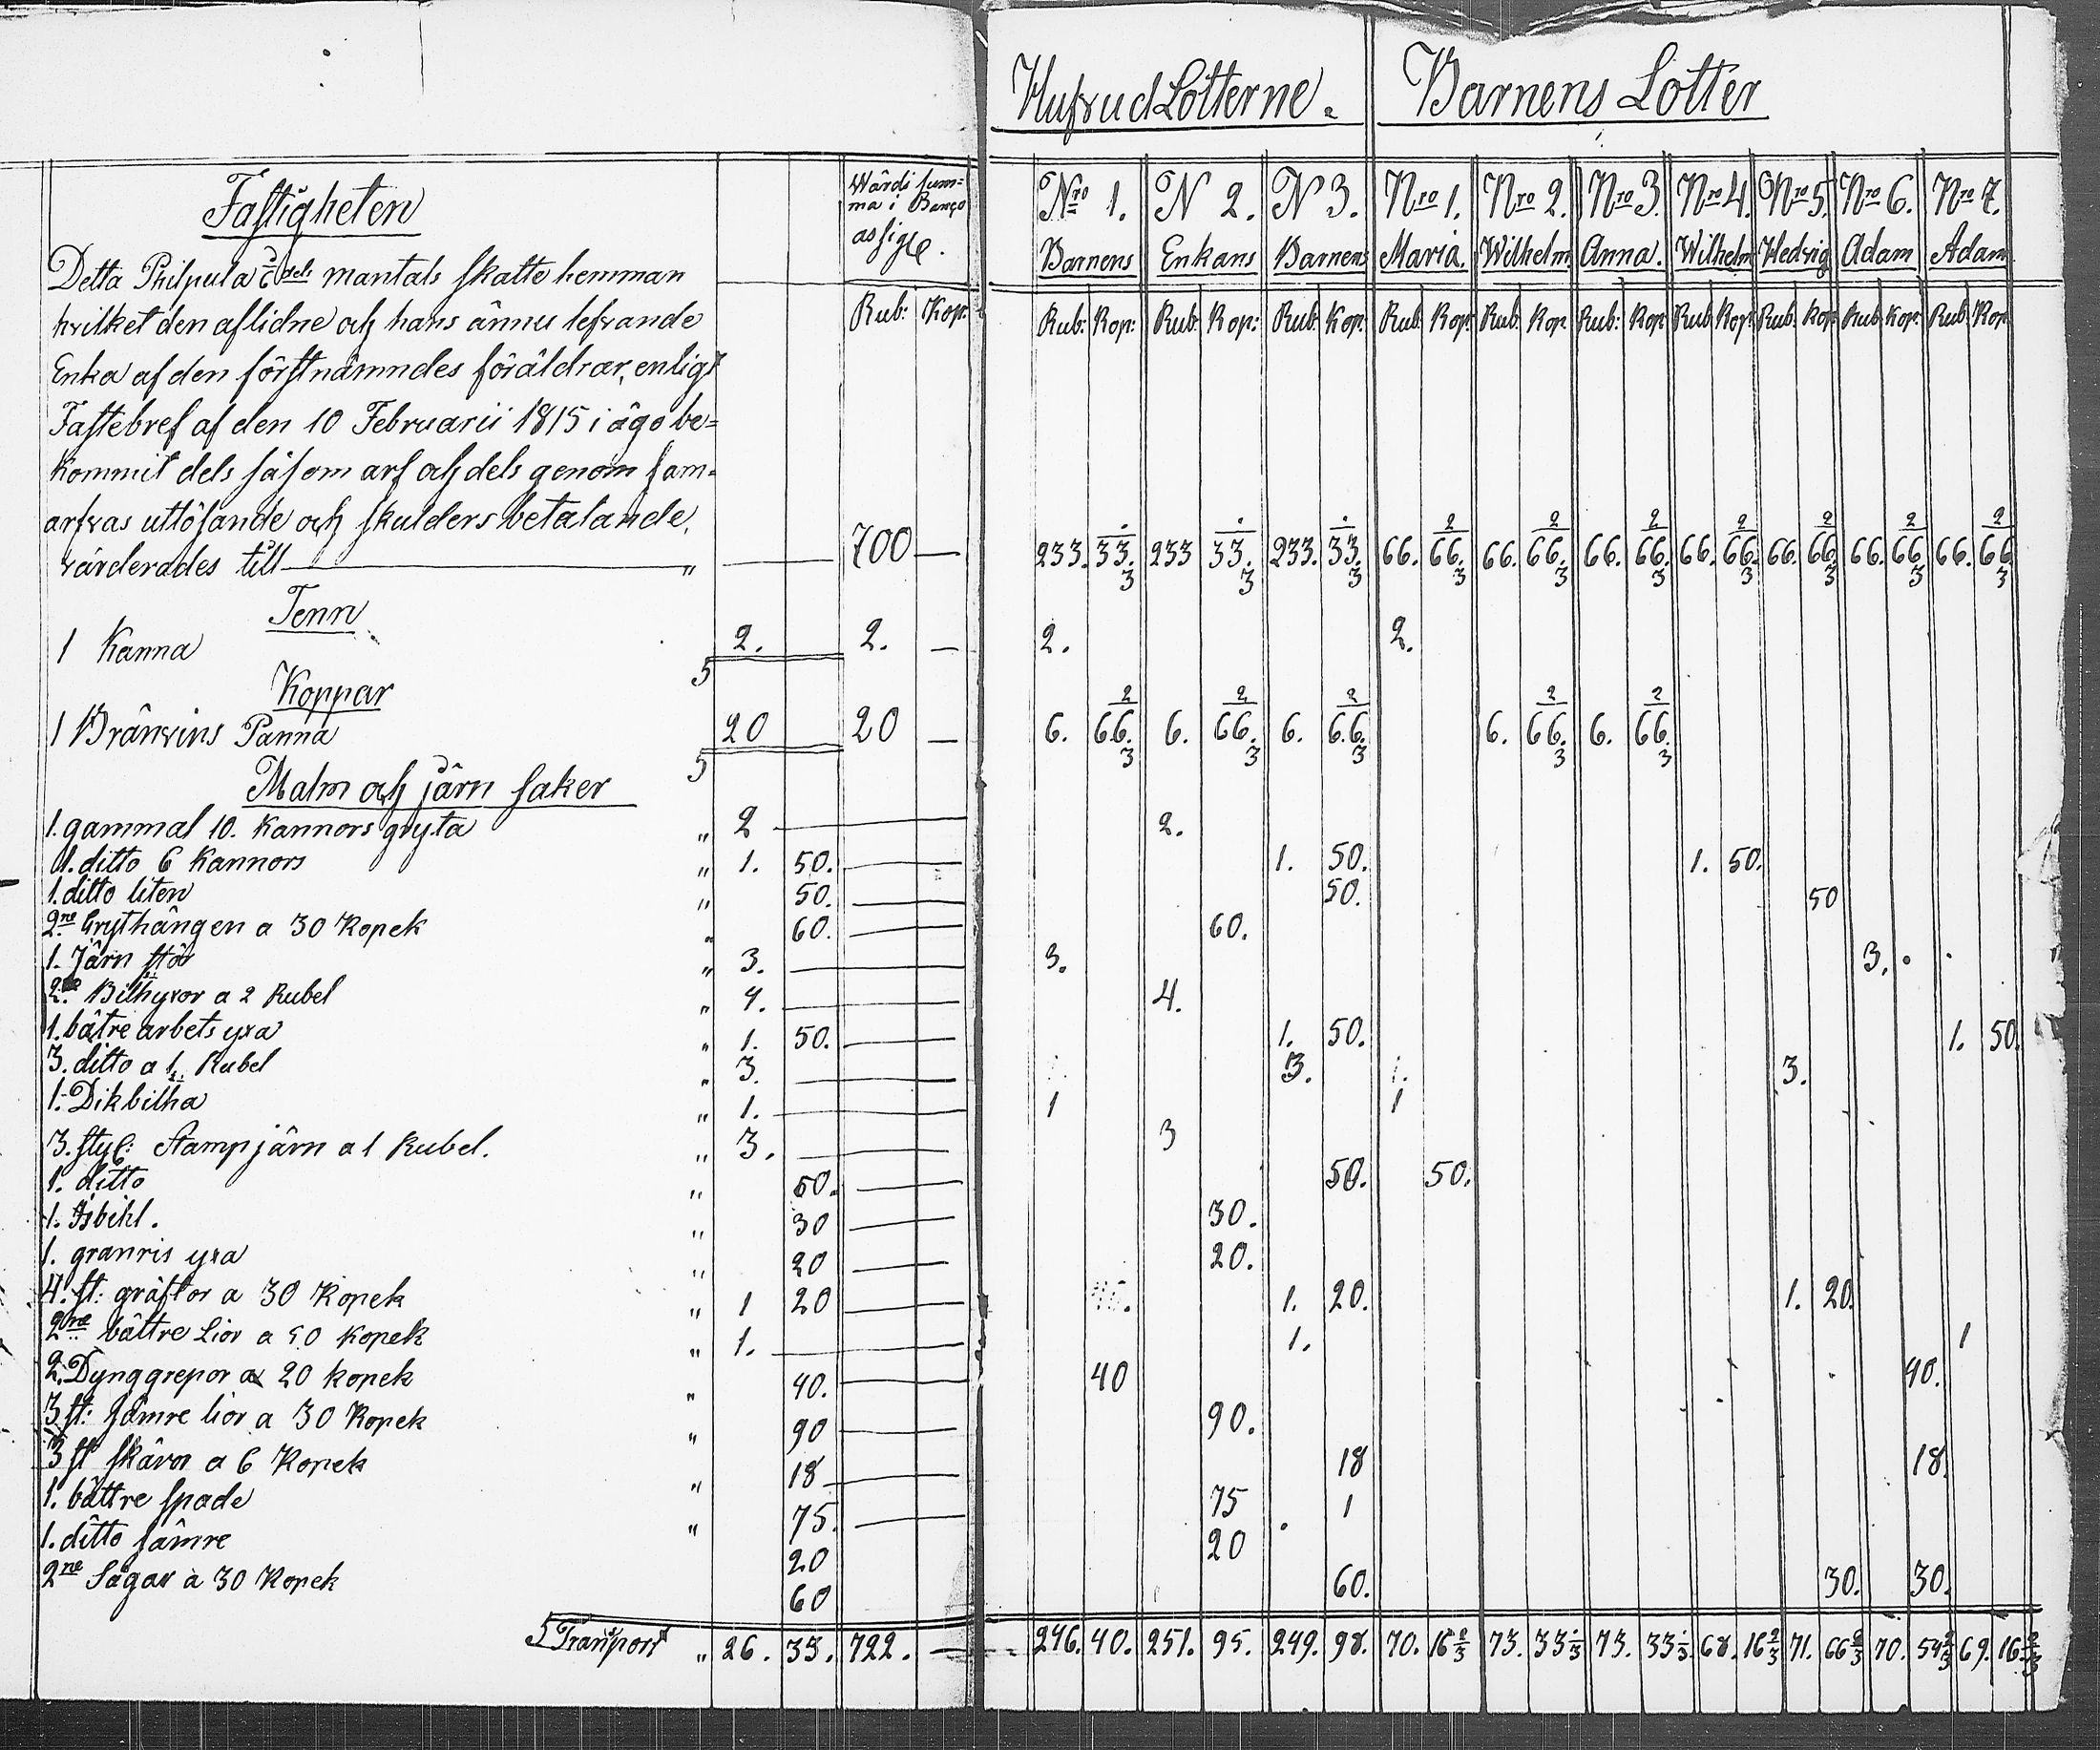 Hufvud Lotterne. Barnens Lotter
Fastigheten
Wärdi sum=
ma i Banco
assig
Nro 1. N 2. N 3. Nro 1. Nro 2. Nro 3. Nro 4. Nro 5. Nro 6. Nro 7.
Barnens Enkans Barnens Maria. Wilhelm Anna. Wilhelm Hedvig Adam Adam
Rub: Kop: Rub: Kop: Rub: Kop: Rub. Kop: Rub: Kop: Rub. Kop. Rub: Kop Rub Kop: Rub. Kop. Rub Kop: Rub. Kop.
Detta Philpula dels mantals skatte hemman
hvilket den aflidne och hans ännu lefvande
Enka af den förstnämndes föräldrar, enligt
Fastebref af den 10 Februarii 1815 i ägo be=
kommit dels såsom arf och dels genom sam=
arfvas utlösande och skulders betalande,
värderades till " 700 — 233. 33 1/3 233 33 1/3 233. 33 1/3 66. 66 2/3 66. 66 2/3 66. 66 2/3 66. 66 2/3 66. 66 2/3 66. 66 2/3 66. 66 2/3
Tenn
1 Kanna 2. 2. — 2. 2.
5
Koppar
1 Bränvins Panna 20 20 — 6. 66 2/3 6. 66 2/3 6. 66 2/3 6. 66 2/3 6. 66 2/3
5
Malm och järn saker
1. gammal 10. Kannors gryta " 2 — 2.
1. ditto 6 Kannors " 1. 50. — 1. 50. 1. 50.
1. ditto liten " 50. — 50. 50
2ne Grythängen a 30 Kopek " 60. — 60.
1. Järn stör " 3. — 3. 3.
2ne Bilhyxor a 2 Rubel " 4. — 4.
1. bätre arbets yxa " 1. 50. — 1. 50. 1. 50.
3. ditto a 1. Rubel " 3. — 3. 3.
1. Dikbilha " 1. — 1 1
3. styc: Stampjärn a 1 Rubel. " 3. — 3
1. ditto " 50. — 50. 50.
1. Isbihl. " 30 — 30.
1. granris yxa " 20 — 20.
4. st: gräftor a 30 Kopek " 1 20 — 1. 20. 1. 20.
2ne bättre Lior a 50 Kopek " 1. — 1. 1
2. Dynggrepor a 20 kopek " 40. — 40 40.
3 st: sämre lior a 30 Kopek " 90 — 90.
3 st skäror a 6 Kopek " 18 — 18 18.
1. bättre spade " 75. — 75 1
1. ditto sämre 20 20
2ne Sågar à 30 Kopek 60 60. 30. 30.
Transport " 26. 33. 722. — 246. 40. 251. 95. 249. 98. 70. 16 2/3 73. 33 1/3 73. 33 1/3 68. 16 2/3 71. 66 2/3 70. 54 2/3 69. 16 2/3